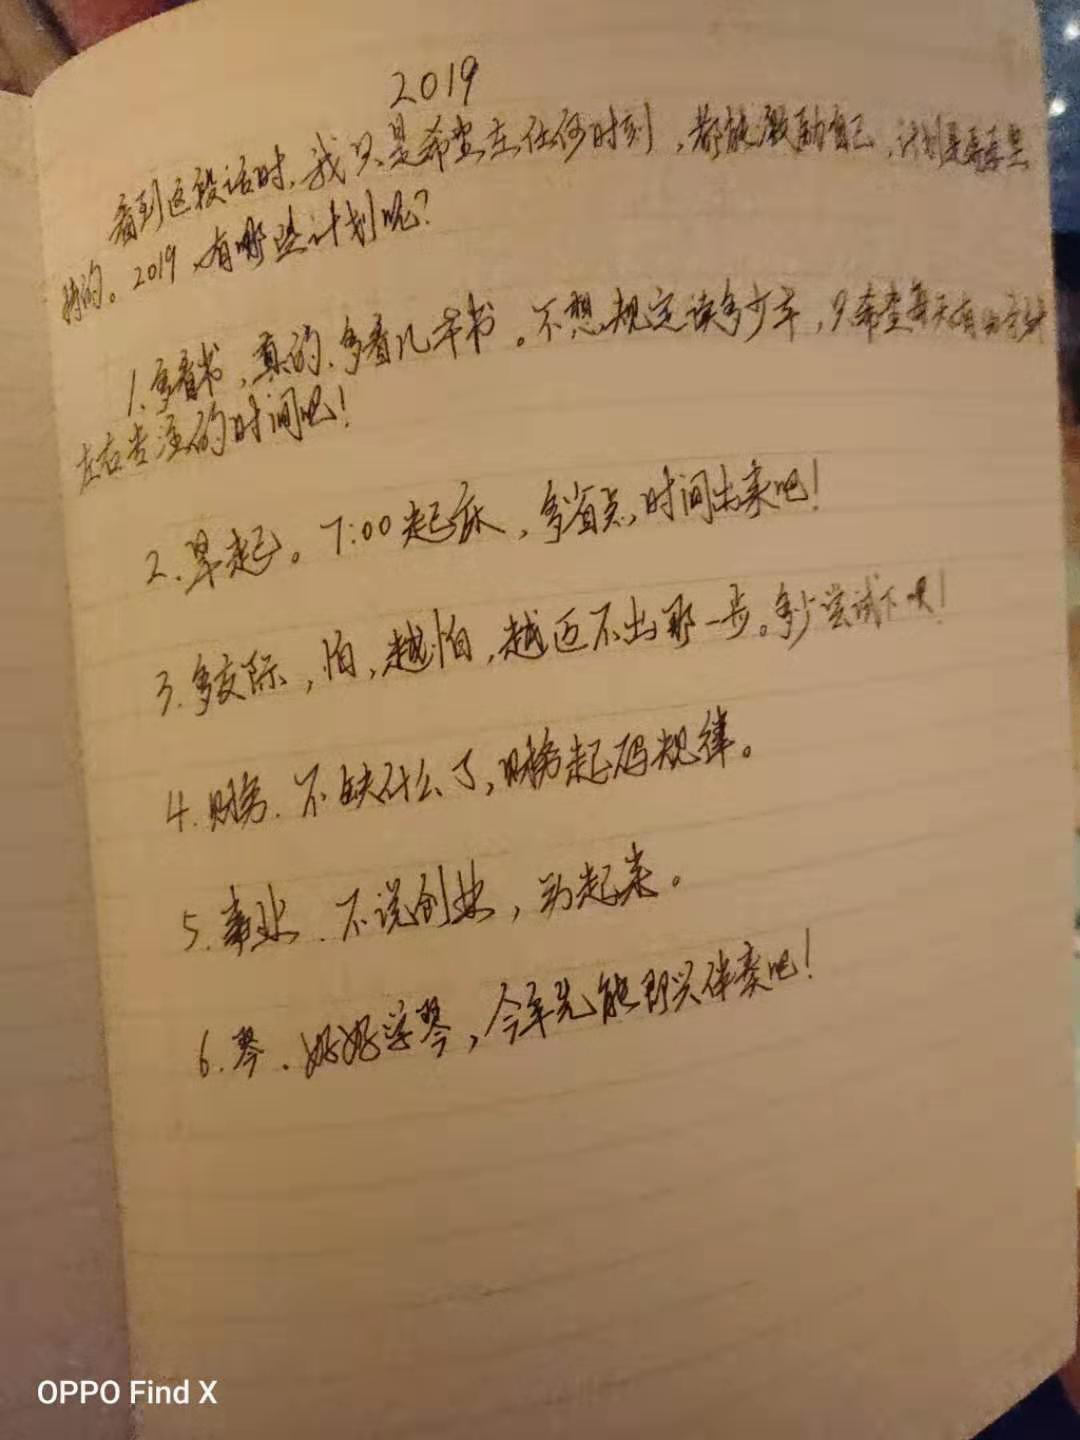 2019
看到这段话时,我只是希望在任何时刻,都能激励自己,计划是需要坚
持的。2019,有哪些计划呢?
1、多看书,真的、多看几本书。不想规定读多少本,只希望每天有
左右专注的时间吧!
2、早起。7:00起床,多省点时间出来吧!
3、多交际,怕,越怕,越迈不出那一步。多少尝试下呗!
4、财务、不缺什么了,财务起码规律。
5、事业、不说创业,动起来。
6、琴、好好学琴,今年先能即兴伴奏吧!
OPPO Find X